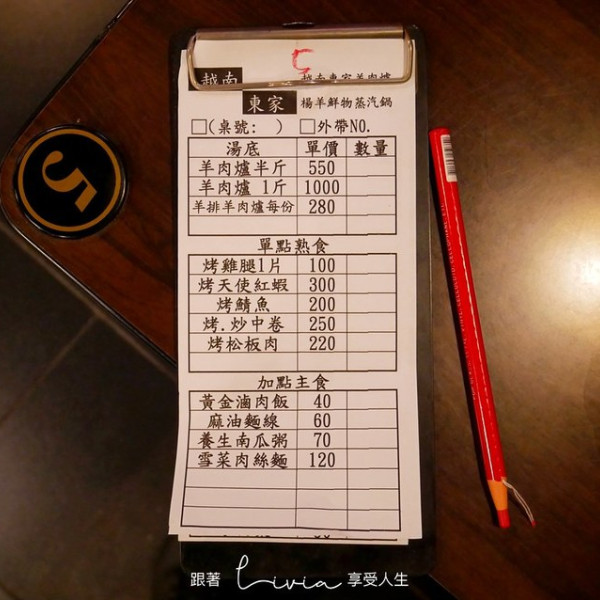 5
5
越南 越南東家羊肉爐
東家 楊羊鮮物蒸汽鍋
□(桌號: ) □外帶NO.
湯底 單價 數量
羊肉爐半斤 550
羊肉爐 1斤 1000
羊排羊肉爐每份 280
單點熟食
烤雞腿1片 100
烤天使紅蝦 300
烤鯖魚 200
烤.炒中卷 250
烤松板肉 220
加點主食
黃金滷肉飯 40
麻油麵線 60
養生南瓜粥 70
雪菜肉絲麵 120
跟著 Livia 享受人生